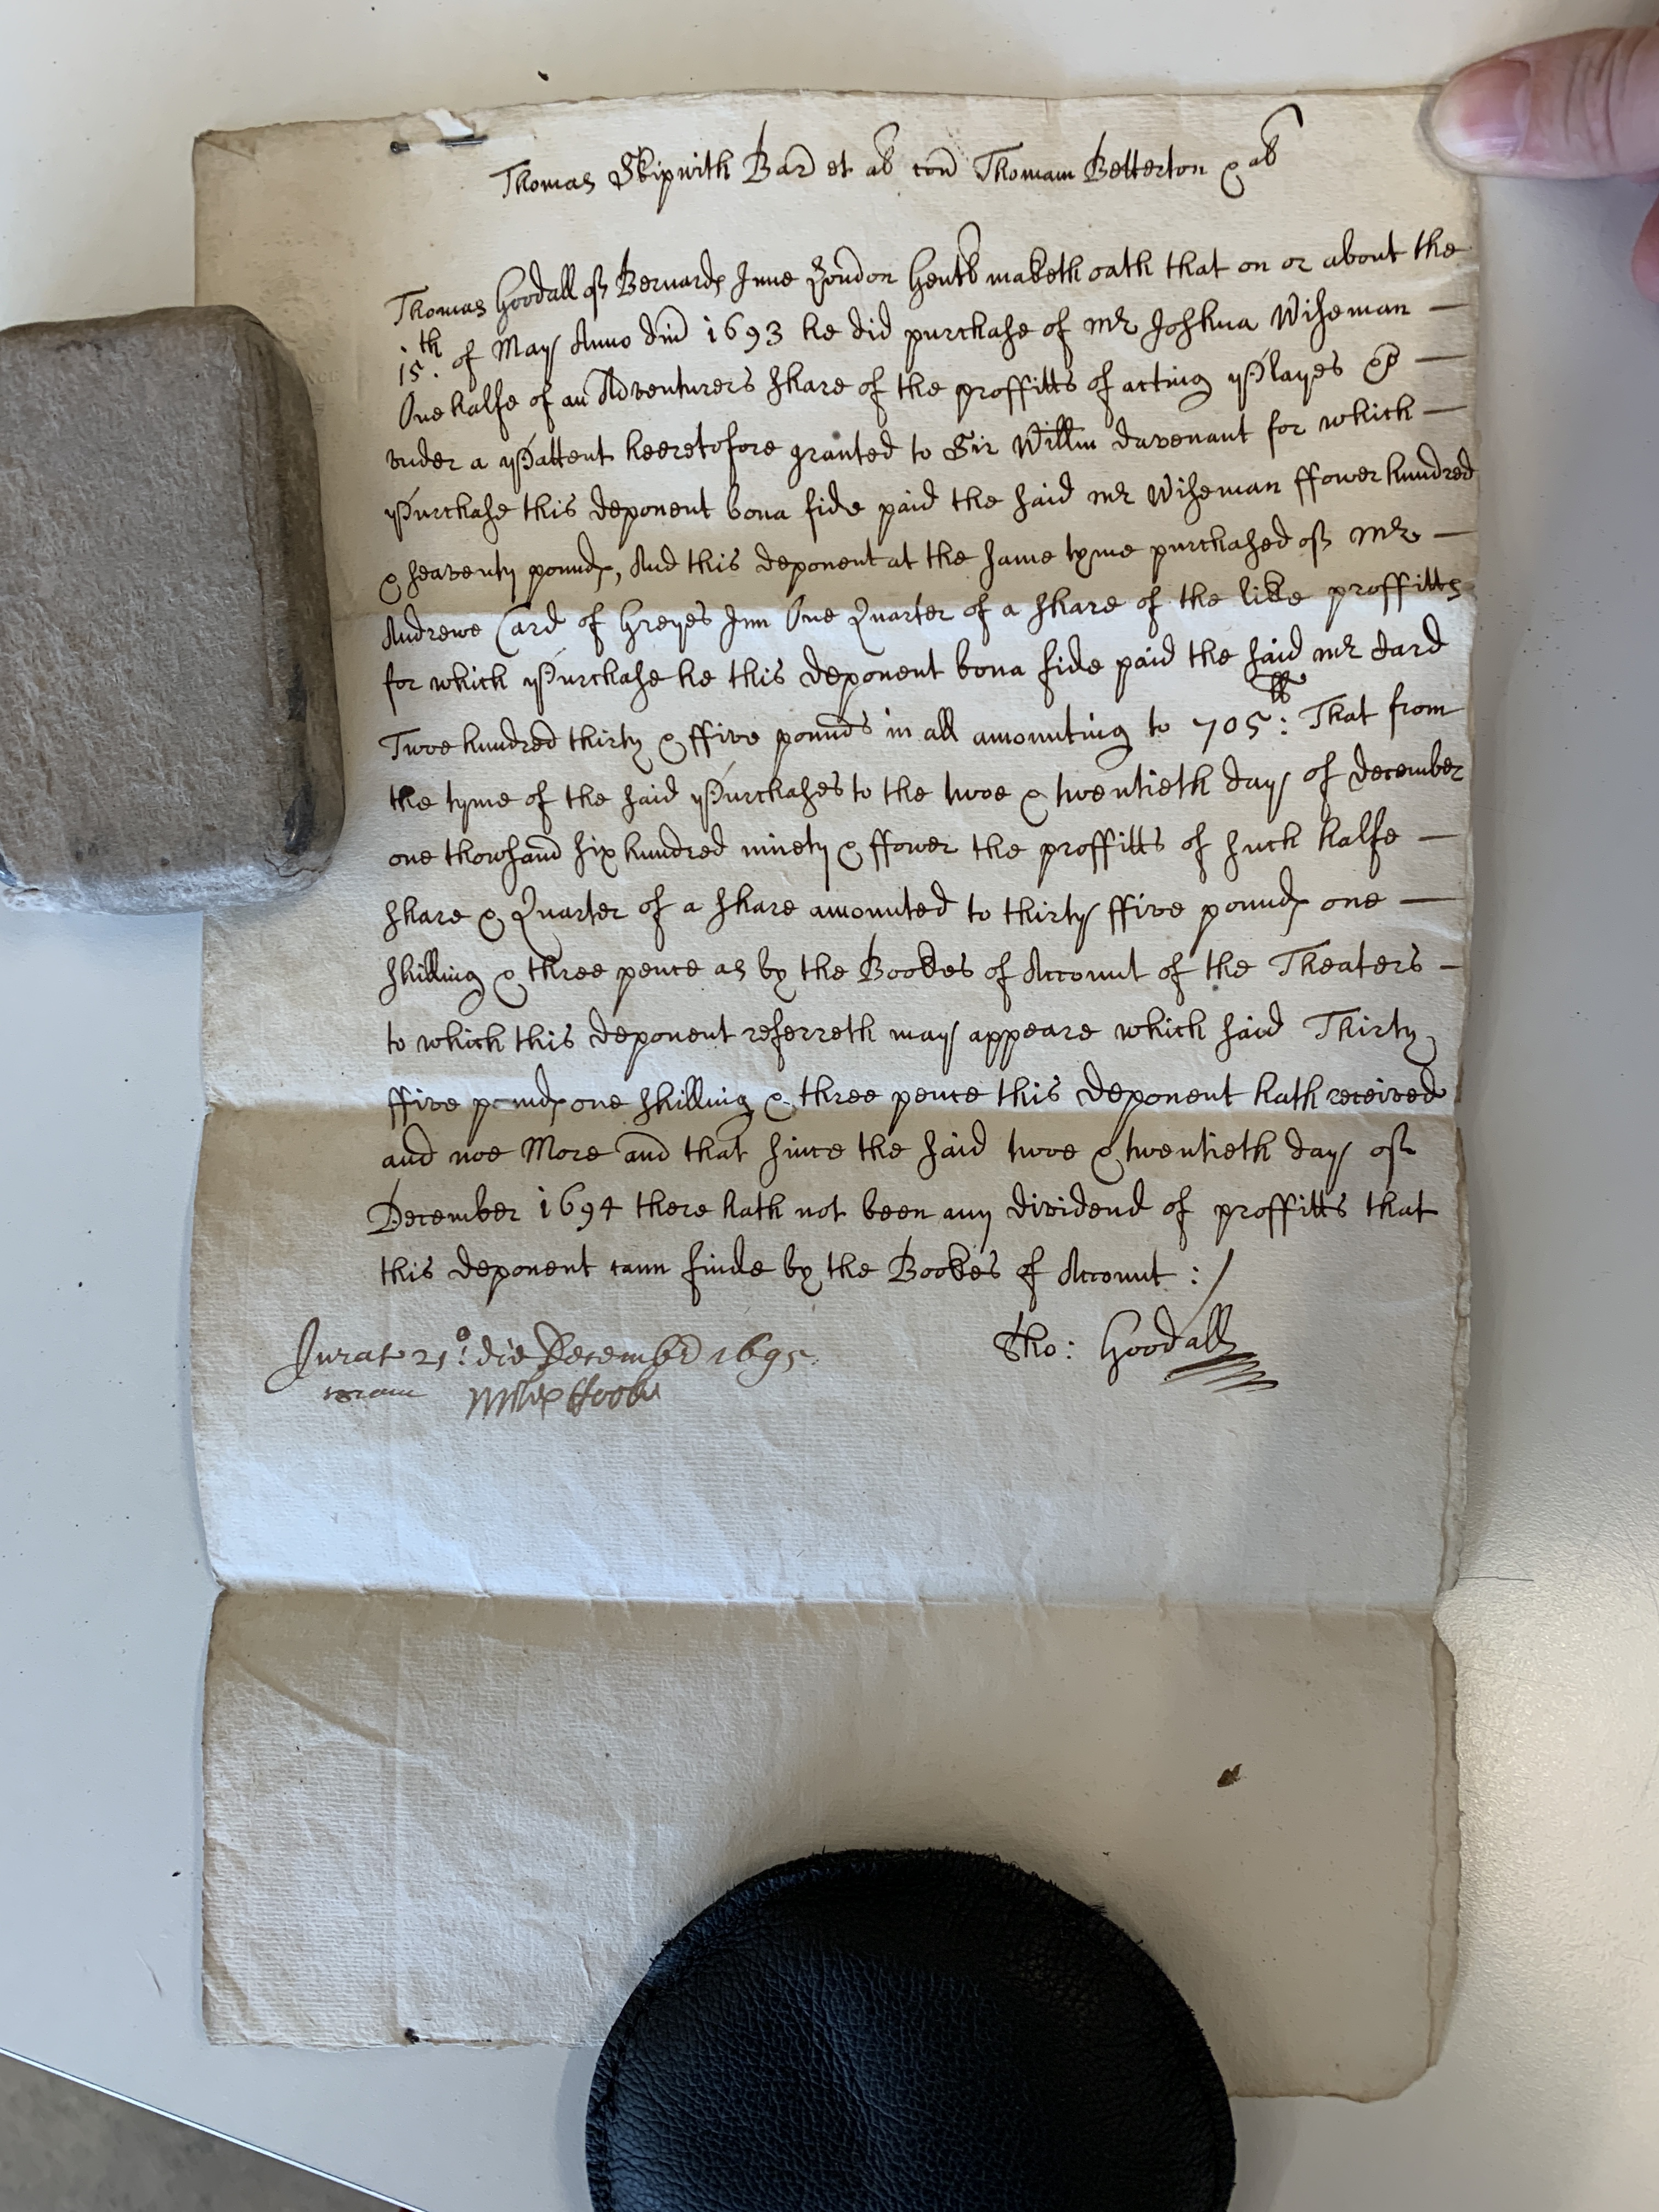 Thomas Skipwith Bar et al con Thomam Betterton & al
Thomas Goodall of Bernards Inne London Gent maketh oath that on or about the
15th. of May Anno dni 1693 he did purchase of Mr Joshua Wiseman —
One halfe of an Adventurers share of the proffitts of acting Playes —
vnder a Pattent heeretofore granted to Sir Willm Davenant for which —
Purchase this deponent bona fide paid the said Mr Wiseman ffower hundred
& seaventy pounds, And this deponent at the same tyme purchased of Mr —
Andrewe Card of Greyes Inn One Quarter of a share of the like proffitts
for which Purchase he this deponent bona fide paid the said Mr Card
Twoe hundred thirty & ffive pounds in all amounting to 705ll: That from
the tyme of the said Purchases to the twoe & twentieth day of december
one thowsand six hundred ninety & ffower the proffitts of such halfe —
share & Quarter of a share amounted to thirty ffive pounds one —
shilling & three pence as by the Bookes of Account of the Theaters —
to which this deponent referreth may appeare which said Thirty
ffive pounds one shilling & three pence this deponent hath received
and noe More and that since the said twoe & twentieth day of
December 1694 there hath not been any dividend of proffitts that
this deponent cann finde by the Bookes of Account :/
Jurat 21o: die Decembr 1695 Tho: Goodall
coram